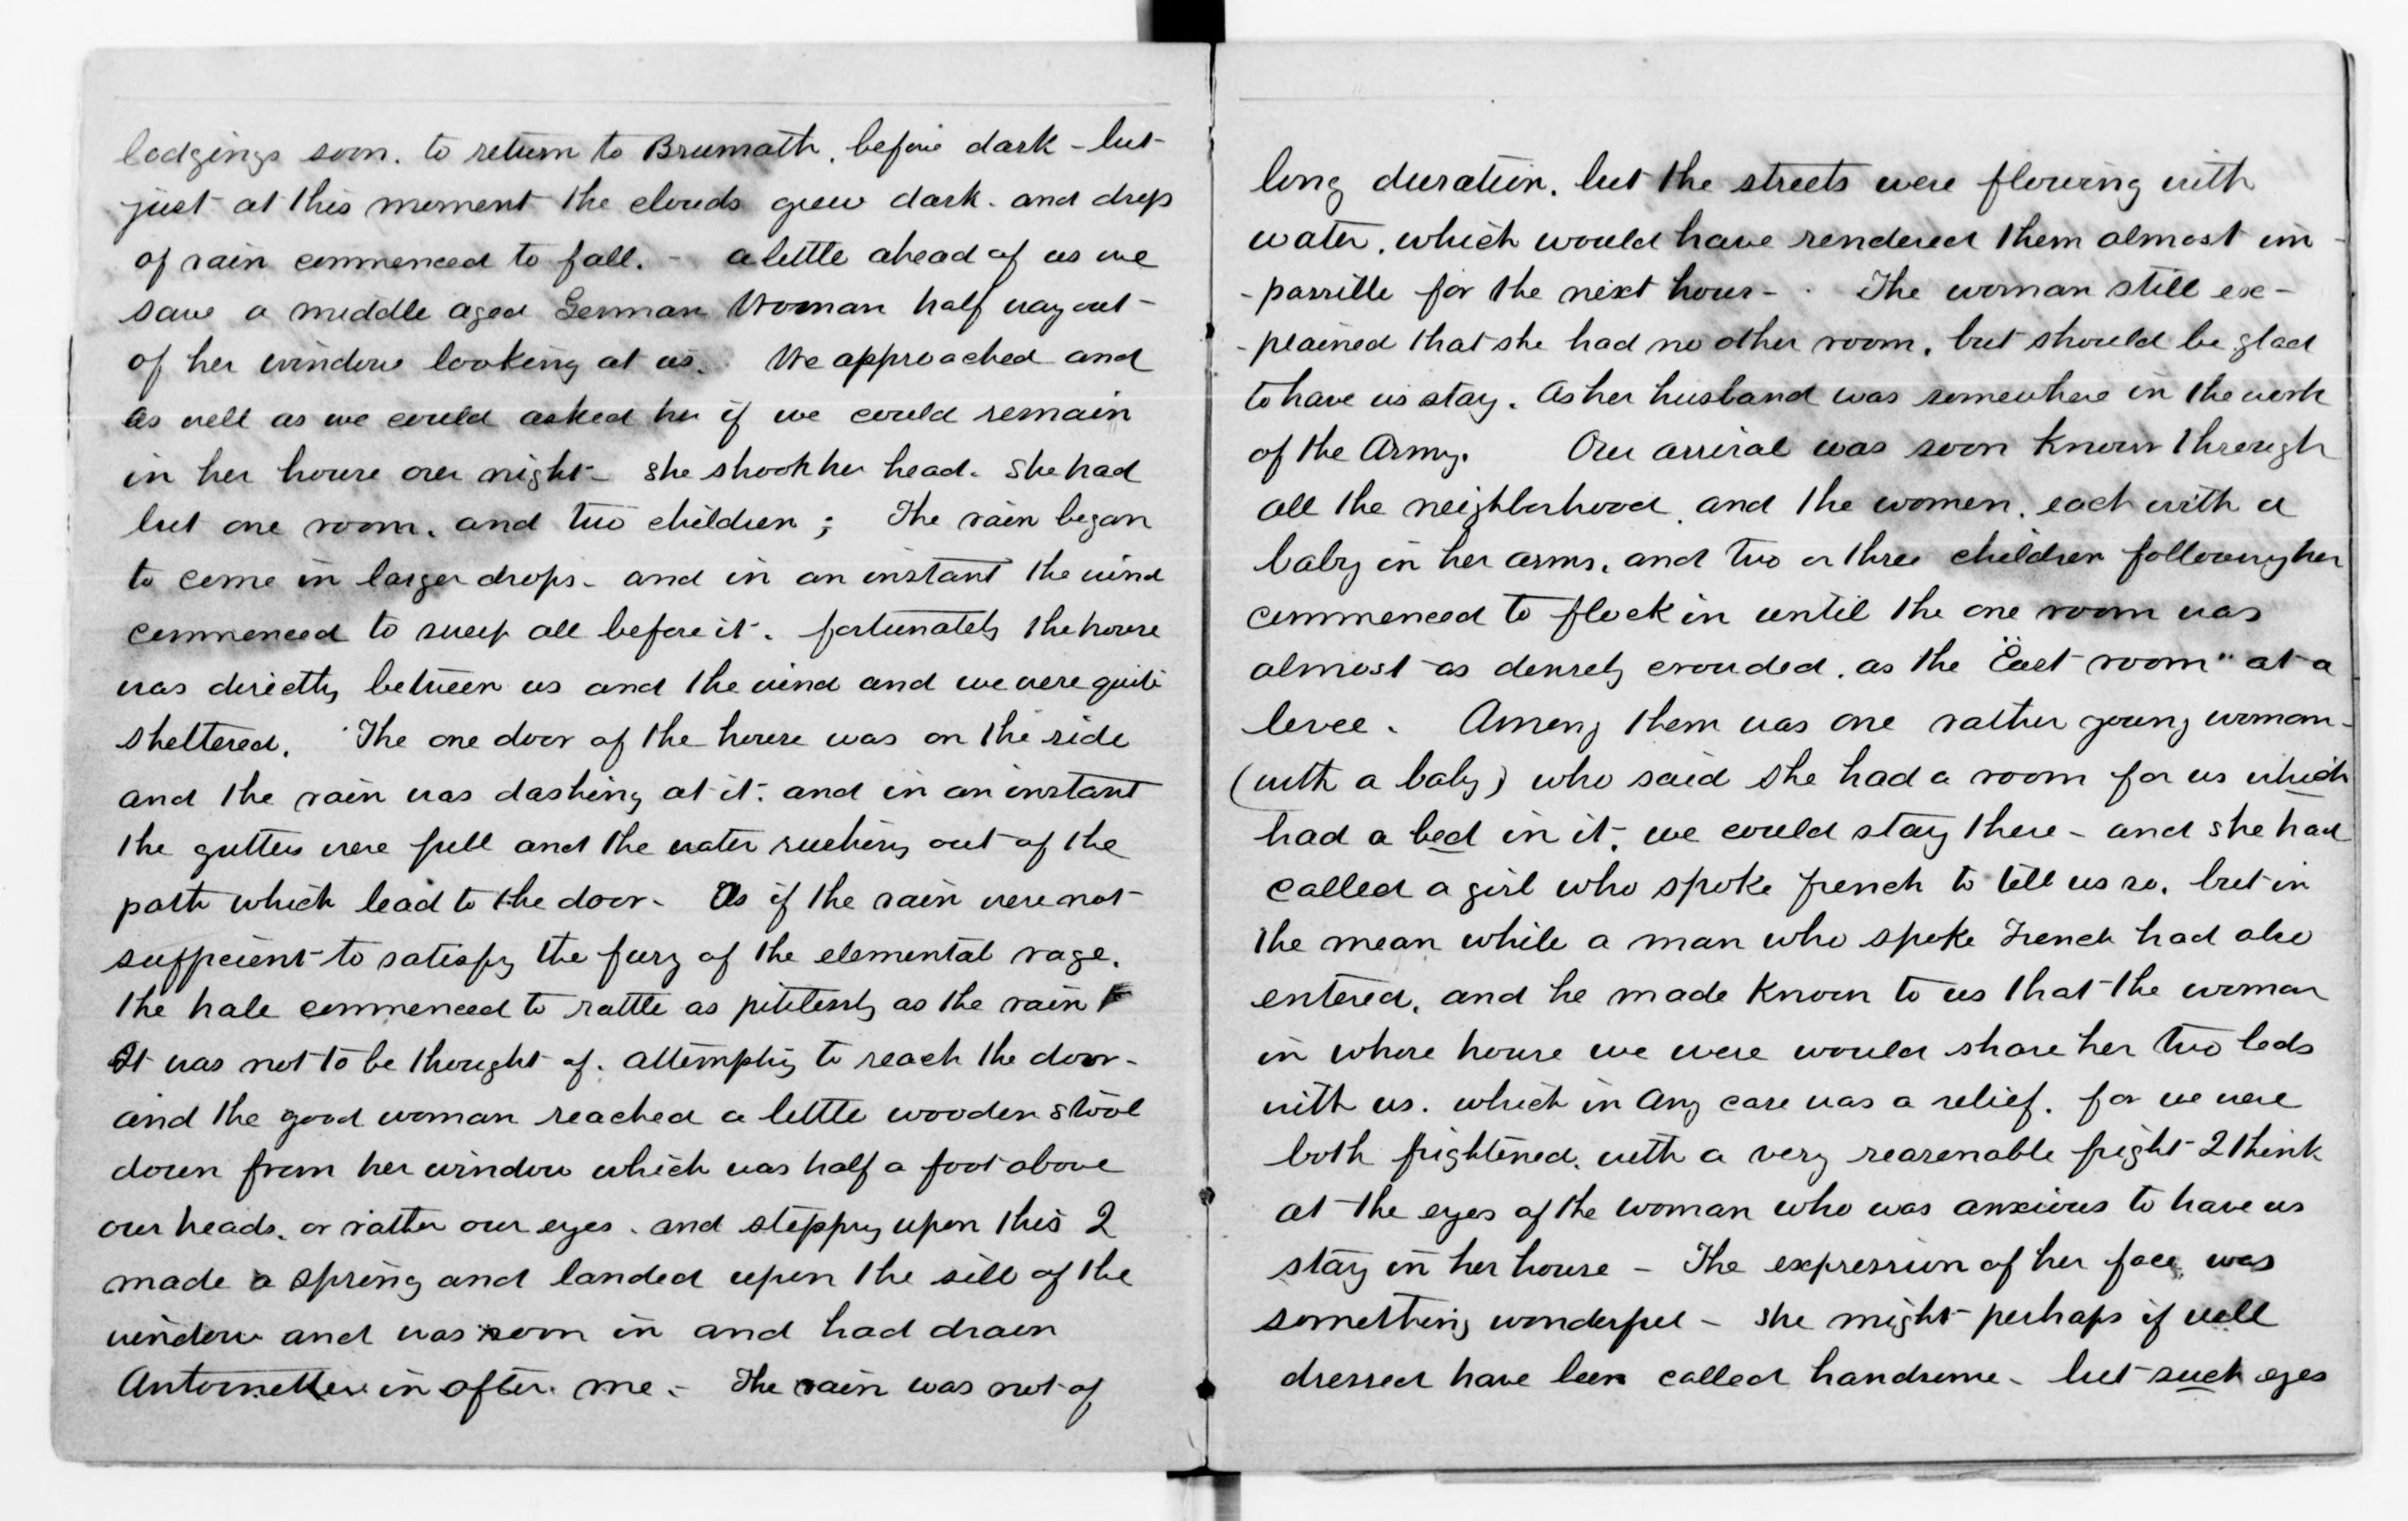 lodgings soon. to return to Brumath, before dark - but
just at this moment the clouds grew dark. and drops
of rain commenced to fall. - a little ahead of us we
saw a middle aged German Woman half way out
of her window looking at us. We approached and
as well as we could asked her if we could remain
in her house over night - she shook her head. she had
but one room. and two children ; The rain began
to come in larger drops - and in an instant the wind
commenced to sweep all before it. fortunately the house
was directly between us and the wind and we were quite
sheltered. The one door of the house was on the side
and the rain was dashing at it. and in an instant
the gutters were full and the water rushing out of the
path which lead to the door - As if the rain were not
sufficient to satisfy the fury of the elemental rage.
the hale commenced to rattle as pitilessly as the rain
It was not to be thought of. attempting to reach the door -
and the good woman reached a little wooden stool
down from her window which was half a foot above
our heads. or rather our eyes. and stepping upon this I
made a spring and landed upon the sill of the
window and was soon in and had drawn
Antoinette in after me. - The rain was not of
long duration. but the streets were flowing with
water. which would have rendered them almost im -
- passible for the next hour - . The woman still ex -
- plained that she had no other room. but should be glad
to have us stay. As her husband was somewhere in the work
of the Army. Our arrival was soon known through
all the neighborhood. and the women. each with a
baby in her arms. and two or three children following her
commenced to flock in until the one room was
almost as densely crowded. as the "East room" at a
levee. Among them was one rather young woman -
(with a baby) who said she had a room for us which
had a bed in it. we could stay there - and she had
called a girl who spoke french to tell us so. but in
the mean while a man who spoke French had also
entered. and he made known to us that the woman
in whose house we were would share her two beds
with us. which in any case was a relief. for we were
both frightened. with a very reasonable fright I think
at the eyes of the woman who was anxious to have us
stay in her house - The expression of her face was
something wonderful - she might perhaps if well
dressed have been called handsome - but such eyes